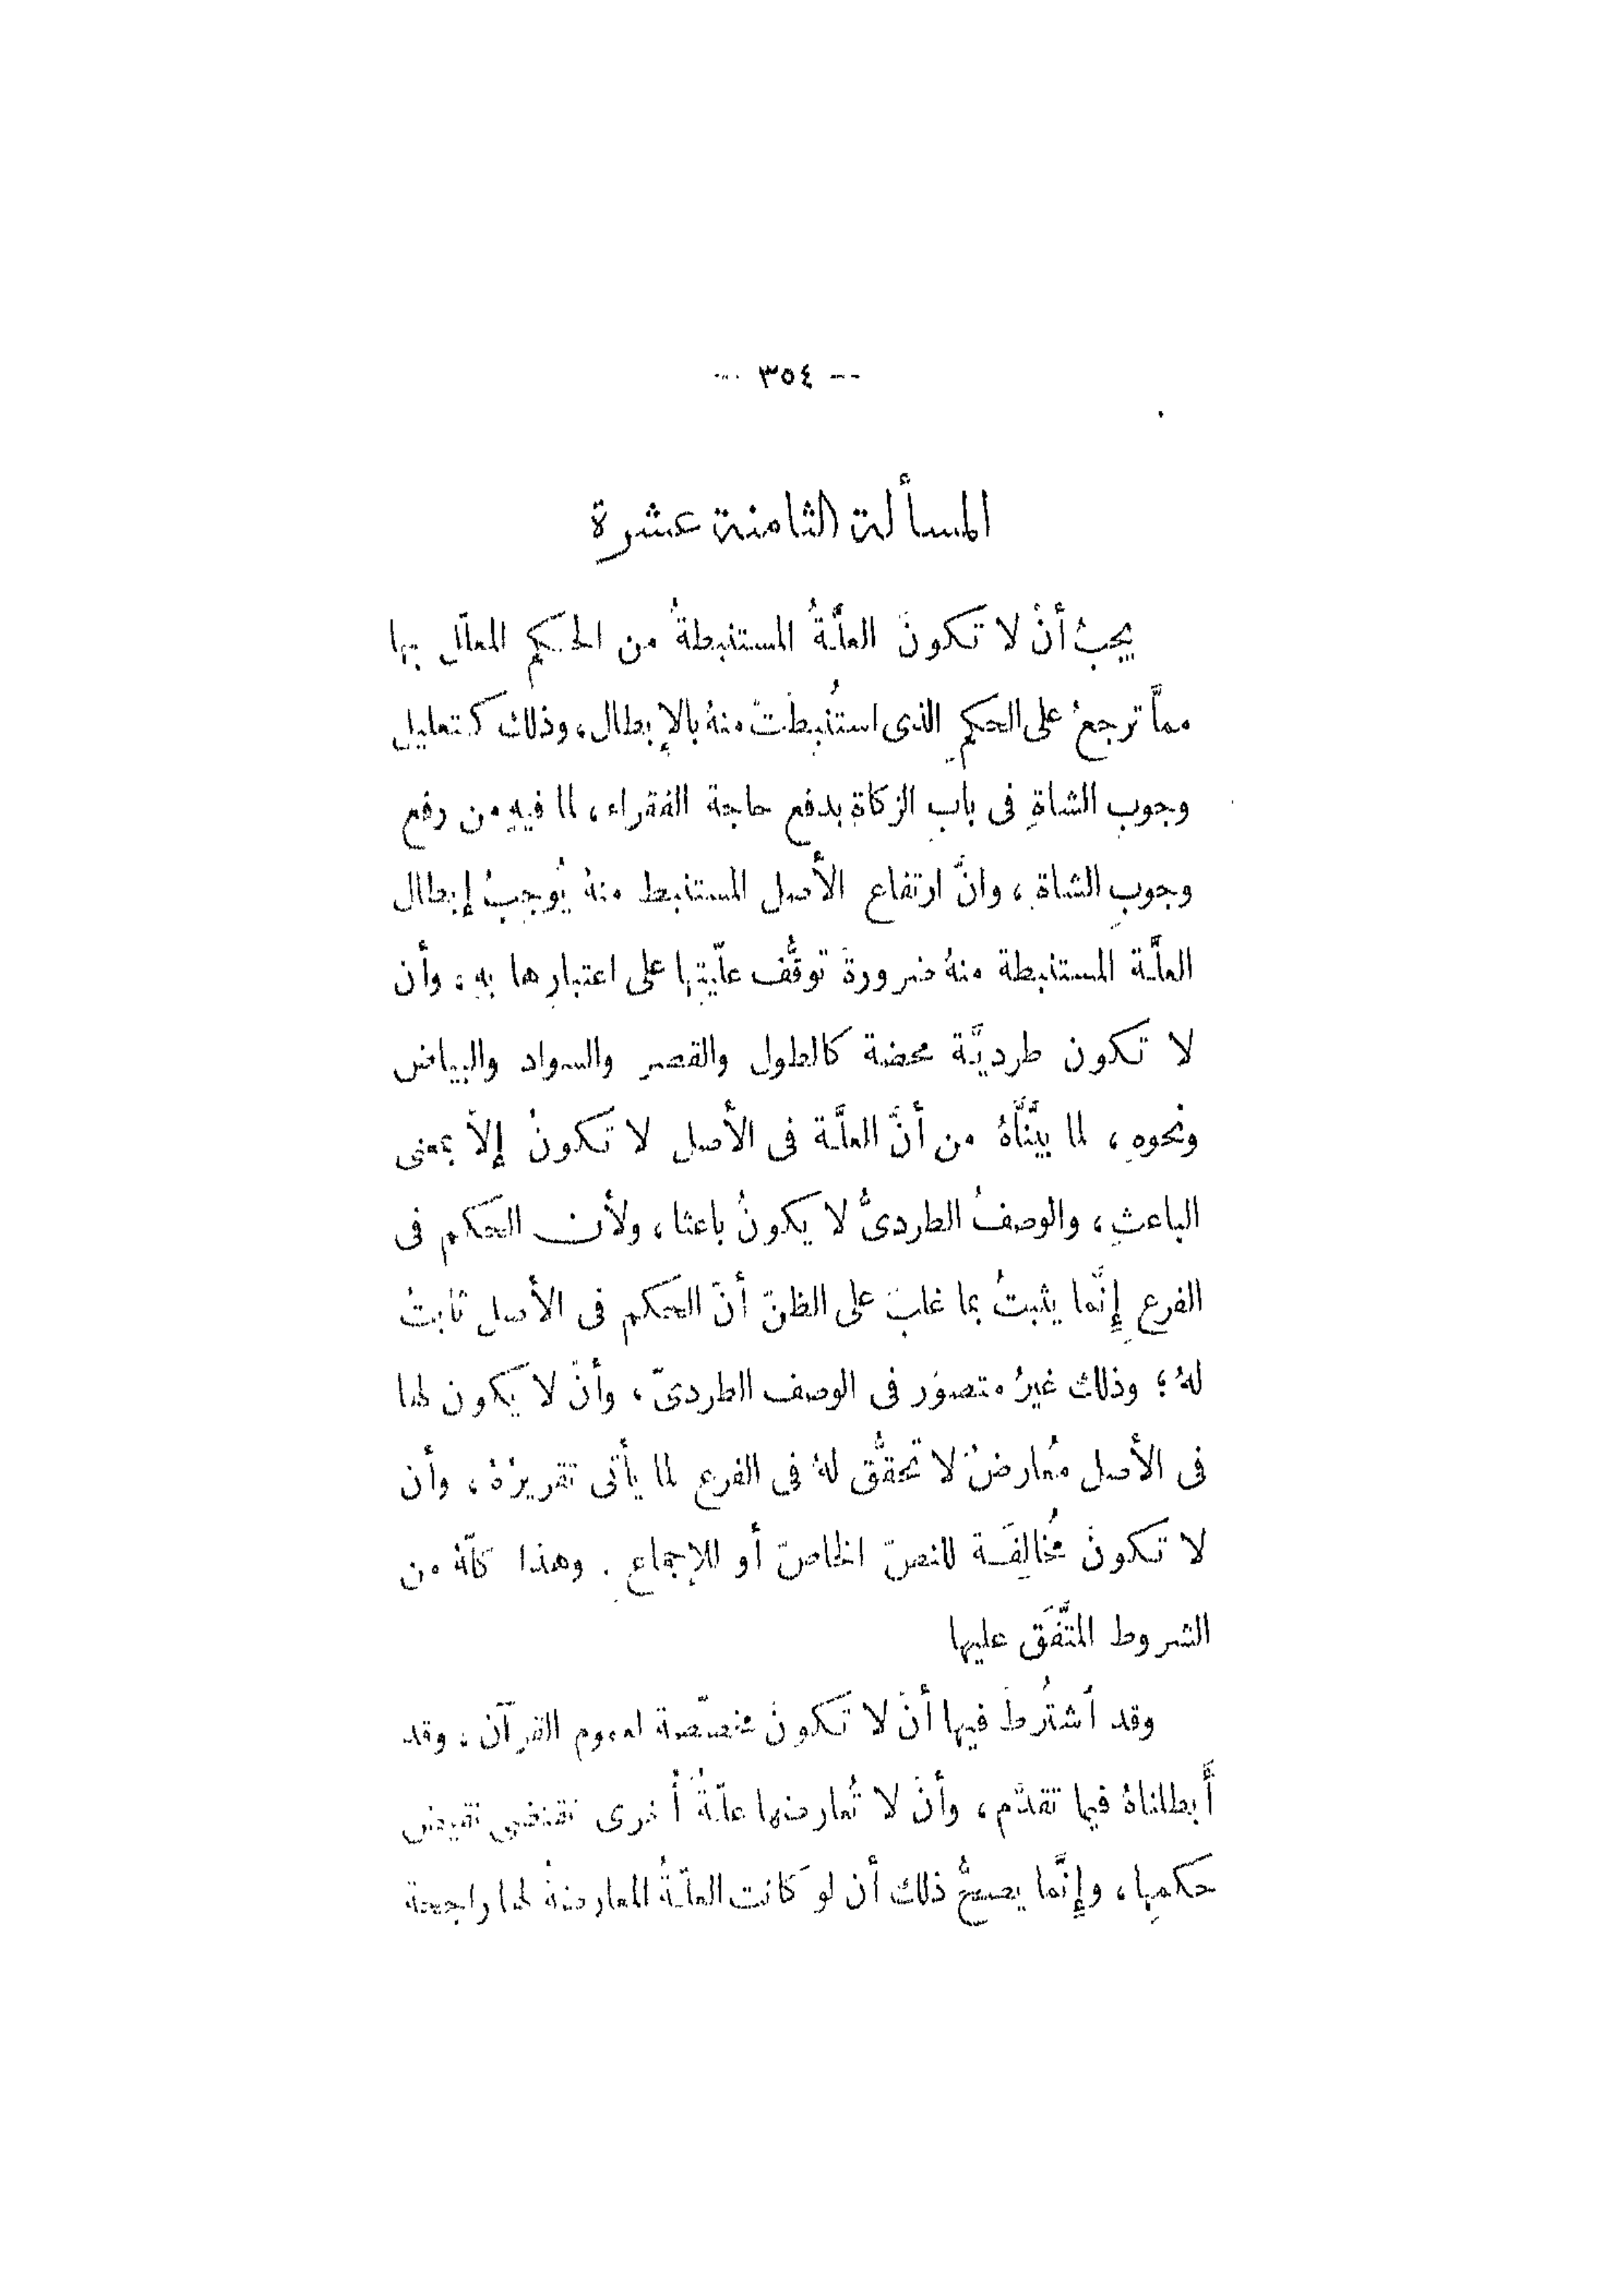 -- ٣٥٤ --
المسألة الثامنة عشرة
يجبُ أنْ لا تكونَ العلَّةُ المستنبطةُ من الحكمِ المعلّل بها
ممَّا ترجعُ على الحكمِ الذى استُنبِطَتْ منهُ بالإبطال، وذلك كتعليل
وجوبِ الشاةِ فى بابِ الزكاةِ بدفعِ حاجة الفقراء، لما فيهِ من رفع
وجوبِ الشاةِ، وانَّ ارتفاع الأصل المستنبط منهُ يُوجِبُ إبطال
العلَّة المستنبطة منهُ ضرورةَ توقُّف علّيّتِها على اعتبارِها بهِ، وأن
لا تكون طرديَّة محضة كالطول والقصرِ والسواد والبياض
ونحوهِ، لما بيَّنَّاهُ من أنَّ العلَّة فى الأصل لا تكونُ إلاّ بمعنى
الباعثِ، والوصفُ الطردىُّ لا يكونُ باعثا، ولأن الحكم فى
الفرعِ إنَّما يثبتُ بما غلبَ على الظنّ أنّ الحكم فى الأصل ثابتُ
لهُ؛ وذلك غيرُ متصوَر فى الوصف الطردىّ، وأنْ لا يكون لها
فى الأصل مُعارضٌ لا تحقُّق لهُ فى الفرع لما يأتى تقريرُهُ، وأن
لا تكونَ مُخالِفَة للنصّ الخاصّ أو للإجماعِ. وهذا كلّهُ من
الشروط المتَّفَق عليها
وقد اَشتُرطَ فيها أنْ لا تكونَ مخصّصة لعموم القرآن، وقد
أَبطلناهُ فيما تقدَّم، وأنْ لا تُعارضها علّةُ أُخرى تقتضى نقيض
حكمِها، وإنَّما يصحُّ ذلك أن لو كانت العلّةُ المعارضةُ لها راجحة